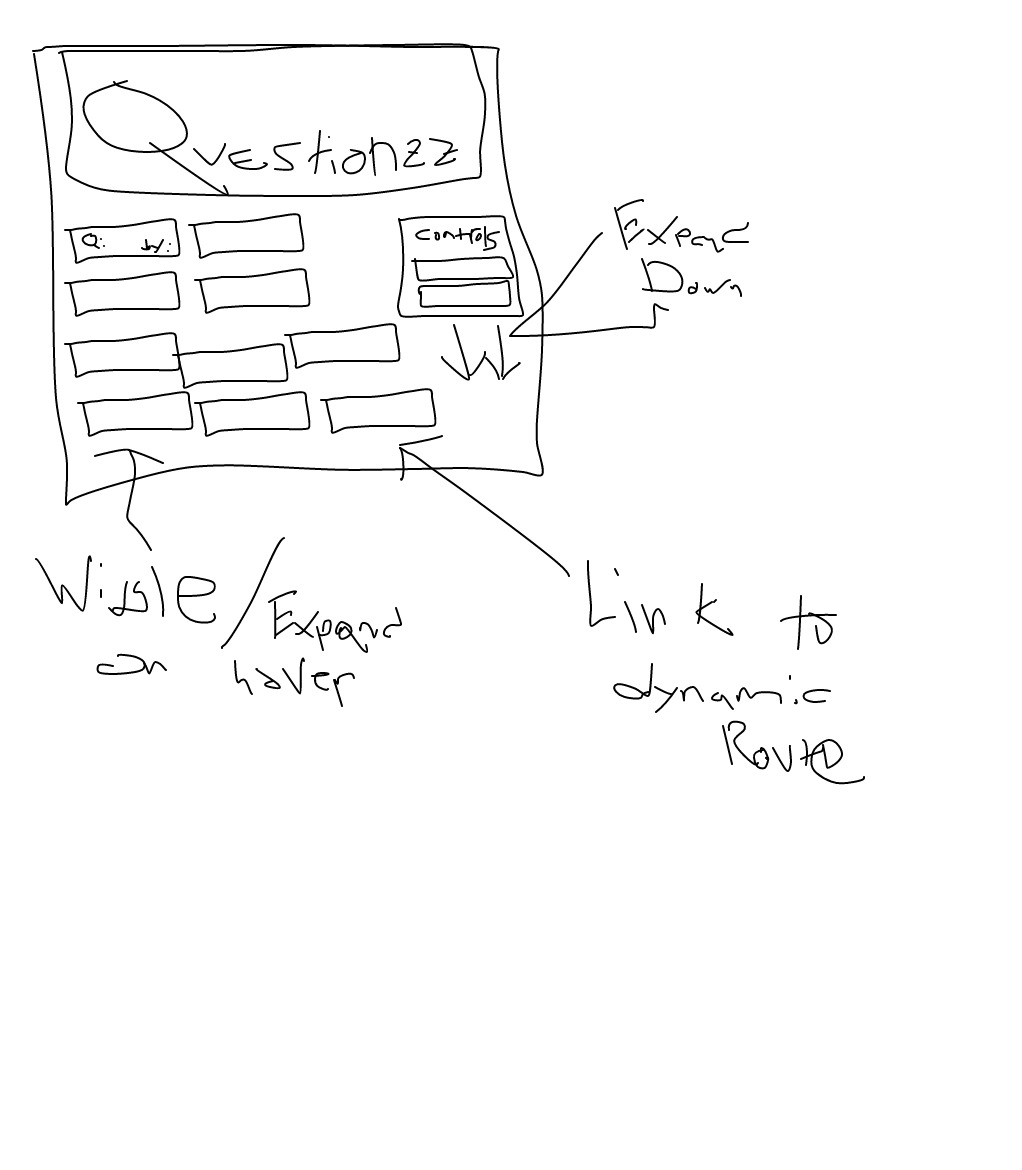 Questionzz
Q: by:
Controls
Expand
Down
Wiggle / Expand
on hover
Link to
dynamic
Route